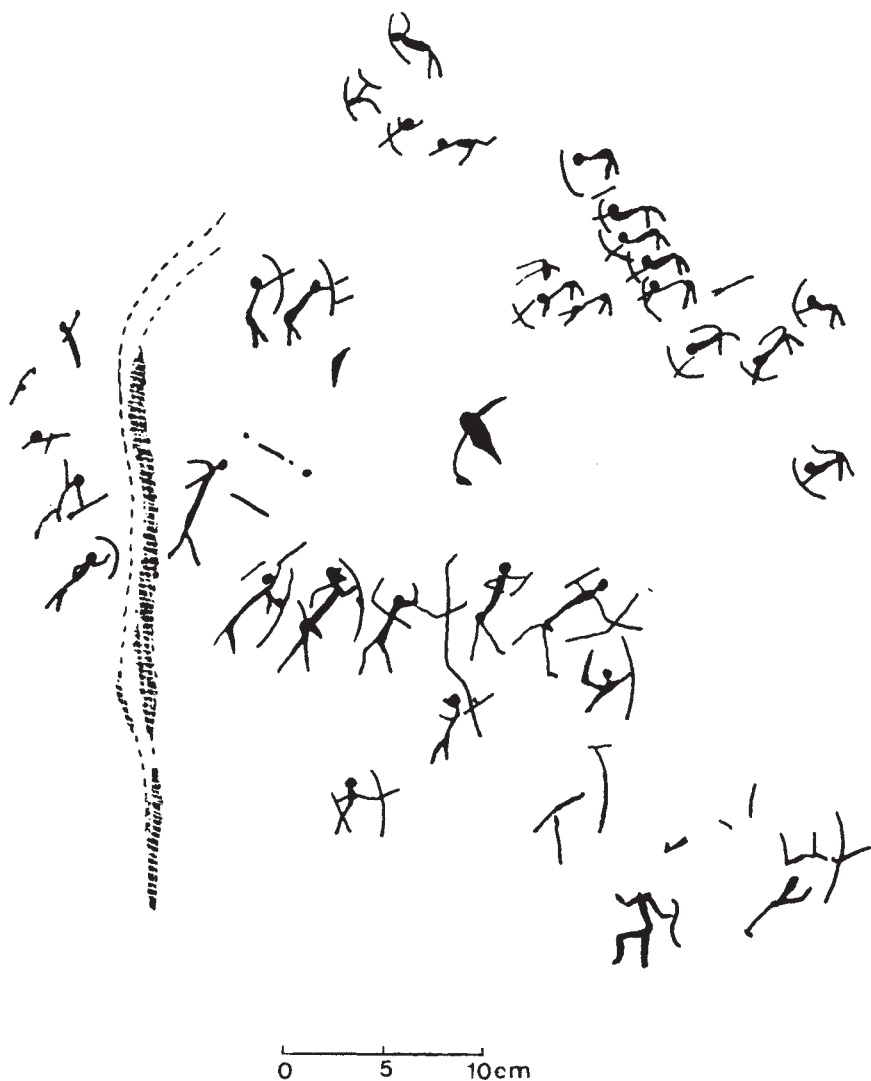 0 5 10cm